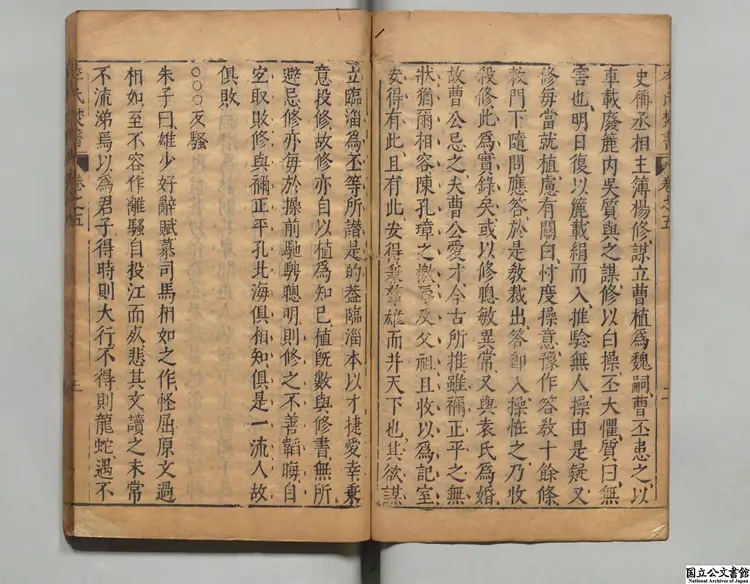 史稱丞相主簿楊修謀立曹植爲魏嗣曹丕患之以
車載廢簏内吳質與之謀修以白操丕大懼質曰無
害也明日復以簏載絹而入推驗無人操由是疑又
修每當就植慮有關白忖度操意豫作荅教十餘條
敕門下隨問應荅於是教裁出荅卽入操怪之乃收
殺修此爲實錄矣或以修聰敏異常又與袁氏爲婚
故曹公忌之夫曹公愛才今古所推雖禰正平之無
狀猶爾相容陳孔璋之檄辱及父祖且收以爲記室
安得有此且有此安得羣雄而并天下也其欲謀
立臨淄爲丕等所譖是的葢臨淄本以才捷愛幸秉
意投修故修亦自以植爲知已植旣數與修書無所
避忌修亦每於操前馳騁聰明則修之不善韜晦自
宜取敗修與禰正平孔北海俱相知俱是一流人故
俱敗
○○○反騷
朱子曰雄少好辭賦慕司馬相如之作怪屈原文過
相如至不容作離騷自投江而死悲其文讀之未常
不流涕焉以爲君子得時則大行不得則龍蛇遇不
李氏焚書
卷之五
国立公文書館
National Archives of Japan